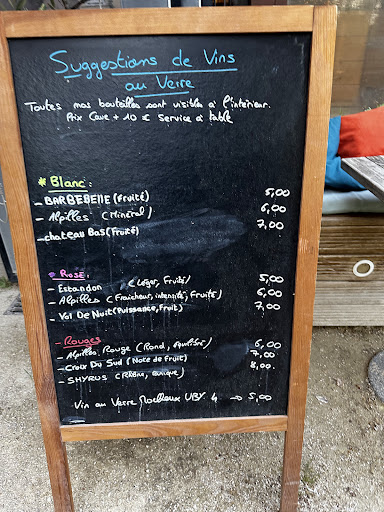 Suggestions de Vins
au Verre
Toutes nos bouteilles sont visibles à l'intérieur.
Prix Cave + 10 € Service à table
* Blanc :
- BARBEBELLE (Fruité) 5,00
- Alpilles (Minéral) 6,00
- chateau Bas (Fruité) 7,00
* Rosé :
- Estandon (Léger, Fruité) 5,00
- Alpilles (Fraicheur, intensité, Fruité) 6,00
- Vol De Nuit (Puissance, Fruit) 7,00
- Rouges
- Alpilles Rouge (Rond, équilibré) 6,00
- Croix Du Sud (Note de Fruit) 7,00
- SHYRUS (Rhône, unique) 8,00.
Vin au Verre Moelleux UBY 4 → 5,00